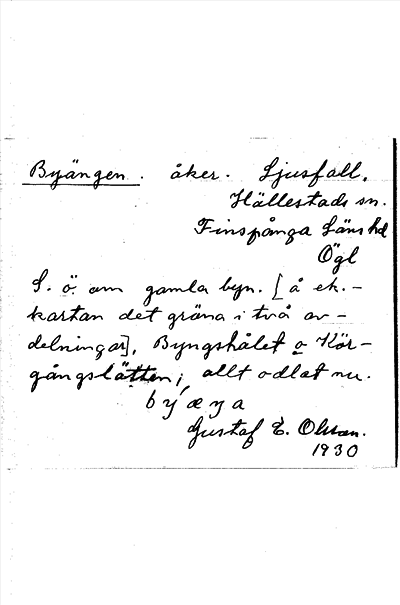 Byängen. åker. Ljusfall,
Hällestads sn.
Finspånga Läns hd
Ögl
S. ö. om gamla byn. [å ek.-
kartan det gröna i två av-
delningar], Byngshålet o Kör-
gångslätten; allt odlat nu.
byæya
Gustaf E. Olsson.
1930